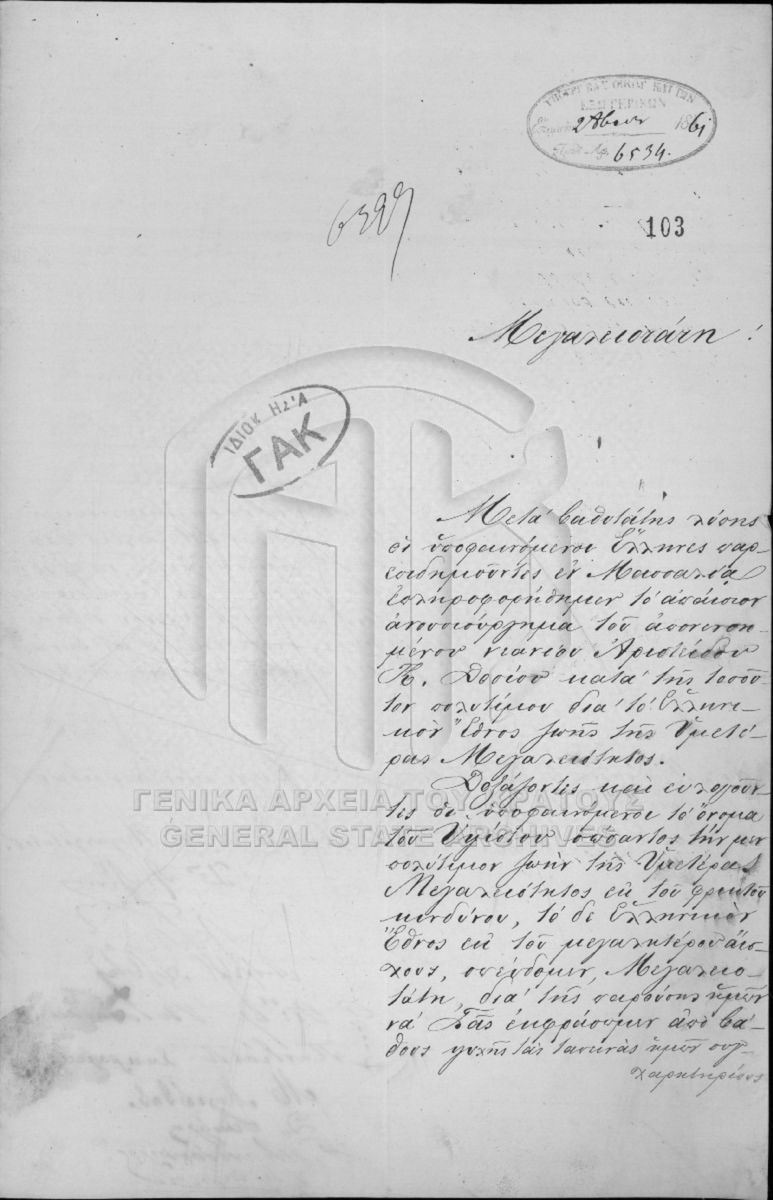 ΥΠΟΥΡΓ
ΕΞΩΤΕΡΙΚΩΝ
2 1861
Πρωτ. Αρ. 6534.
103
Μεγαλειοτάτη!
ΙΔΙΟΚΤΗΣΙΑ
ΓΑΚ
Μετὰ βαθυτάτης λύπης
οἱ ὑποφαινόμενοι Ἕλληνες παρ-
επιδημοῦντες ἐν Μασσαλίᾳ
ἐπληροφορήθημεν τὸ ἀπαίσιον
ἀνοσιούργημα τοῦ ἀπονενοη-
μένου νεανίου Ἀριστείδου
Κ. Δοσίου κατὰ τῆς τοσού-
τον πολυτίμου διὰ τὸ Ἑλληνι-
κὸν Ἔθνος ζωῆς τῆς Ὑμετέ-
ρας Μεγαλειότητος.
Δοξάζοντες καὶ εὐλογοῦν-
τες οἱ ὑποφαινόμενοι τὸ ὄνομα
τοῦ Ὑψίστου σώσαντος τὴν μὲν
πολύτιμον ζωὴν τῆς Ὑμετέρας
Μεγαλειότητος ἐκ τοῦ φρικτοῦ
κινδύνου, τὸ δὲ Ἑλληνικὸν
Ἔθνος ἐκ τοῦ μεγαλητέρου αἴσ-
χους, σπεύδομεν, Μεγαλειο-
τάτη, διὰ τῆς παρούσης ἡμῶν
νὰ Σᾶς ἐκφράσωμεν ἀπὸ βά-
θους ψυχῆς τὰς ταπεινὰς ἡμῶν συγ-
χαρητηρίους
ΓΕΝΙΚΑ ΑΡΧΕΙΑ ΤΟΥ ΚΡΑΤΟΥΣ
GENERAL STATE ARCHIVES